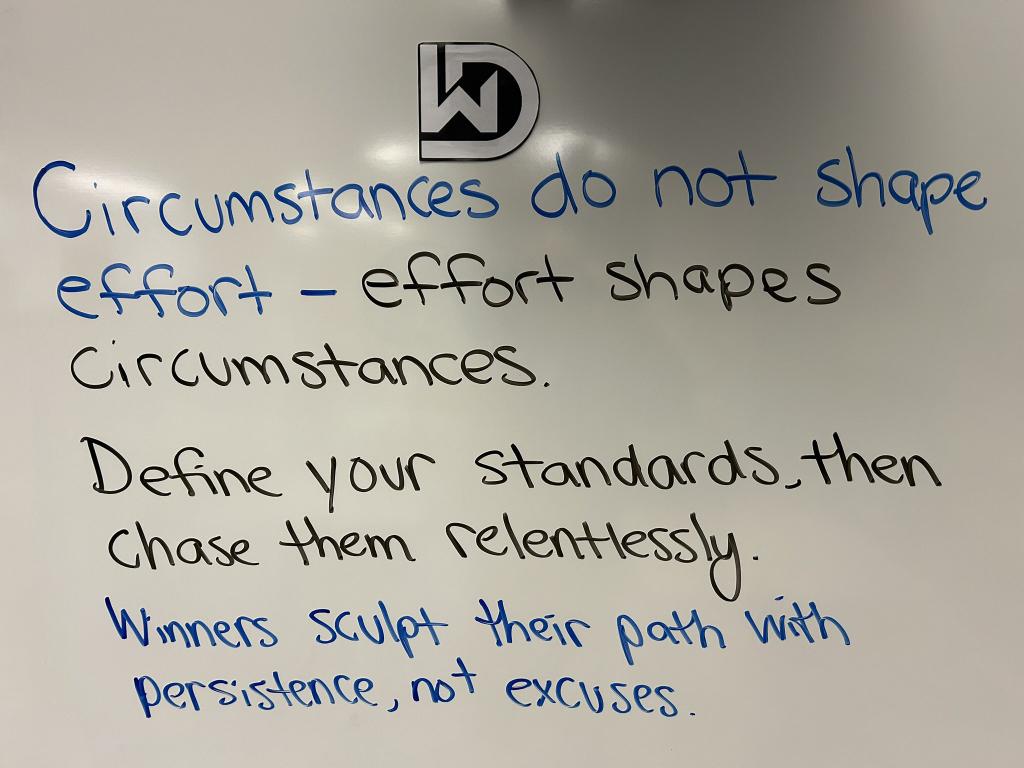 WD
Circumstances do not shape
effort - effort shapes
circumstances.
Define your standards, then
chase them relentlessly.
Winners sculpt their path with
persistence, not excuses.